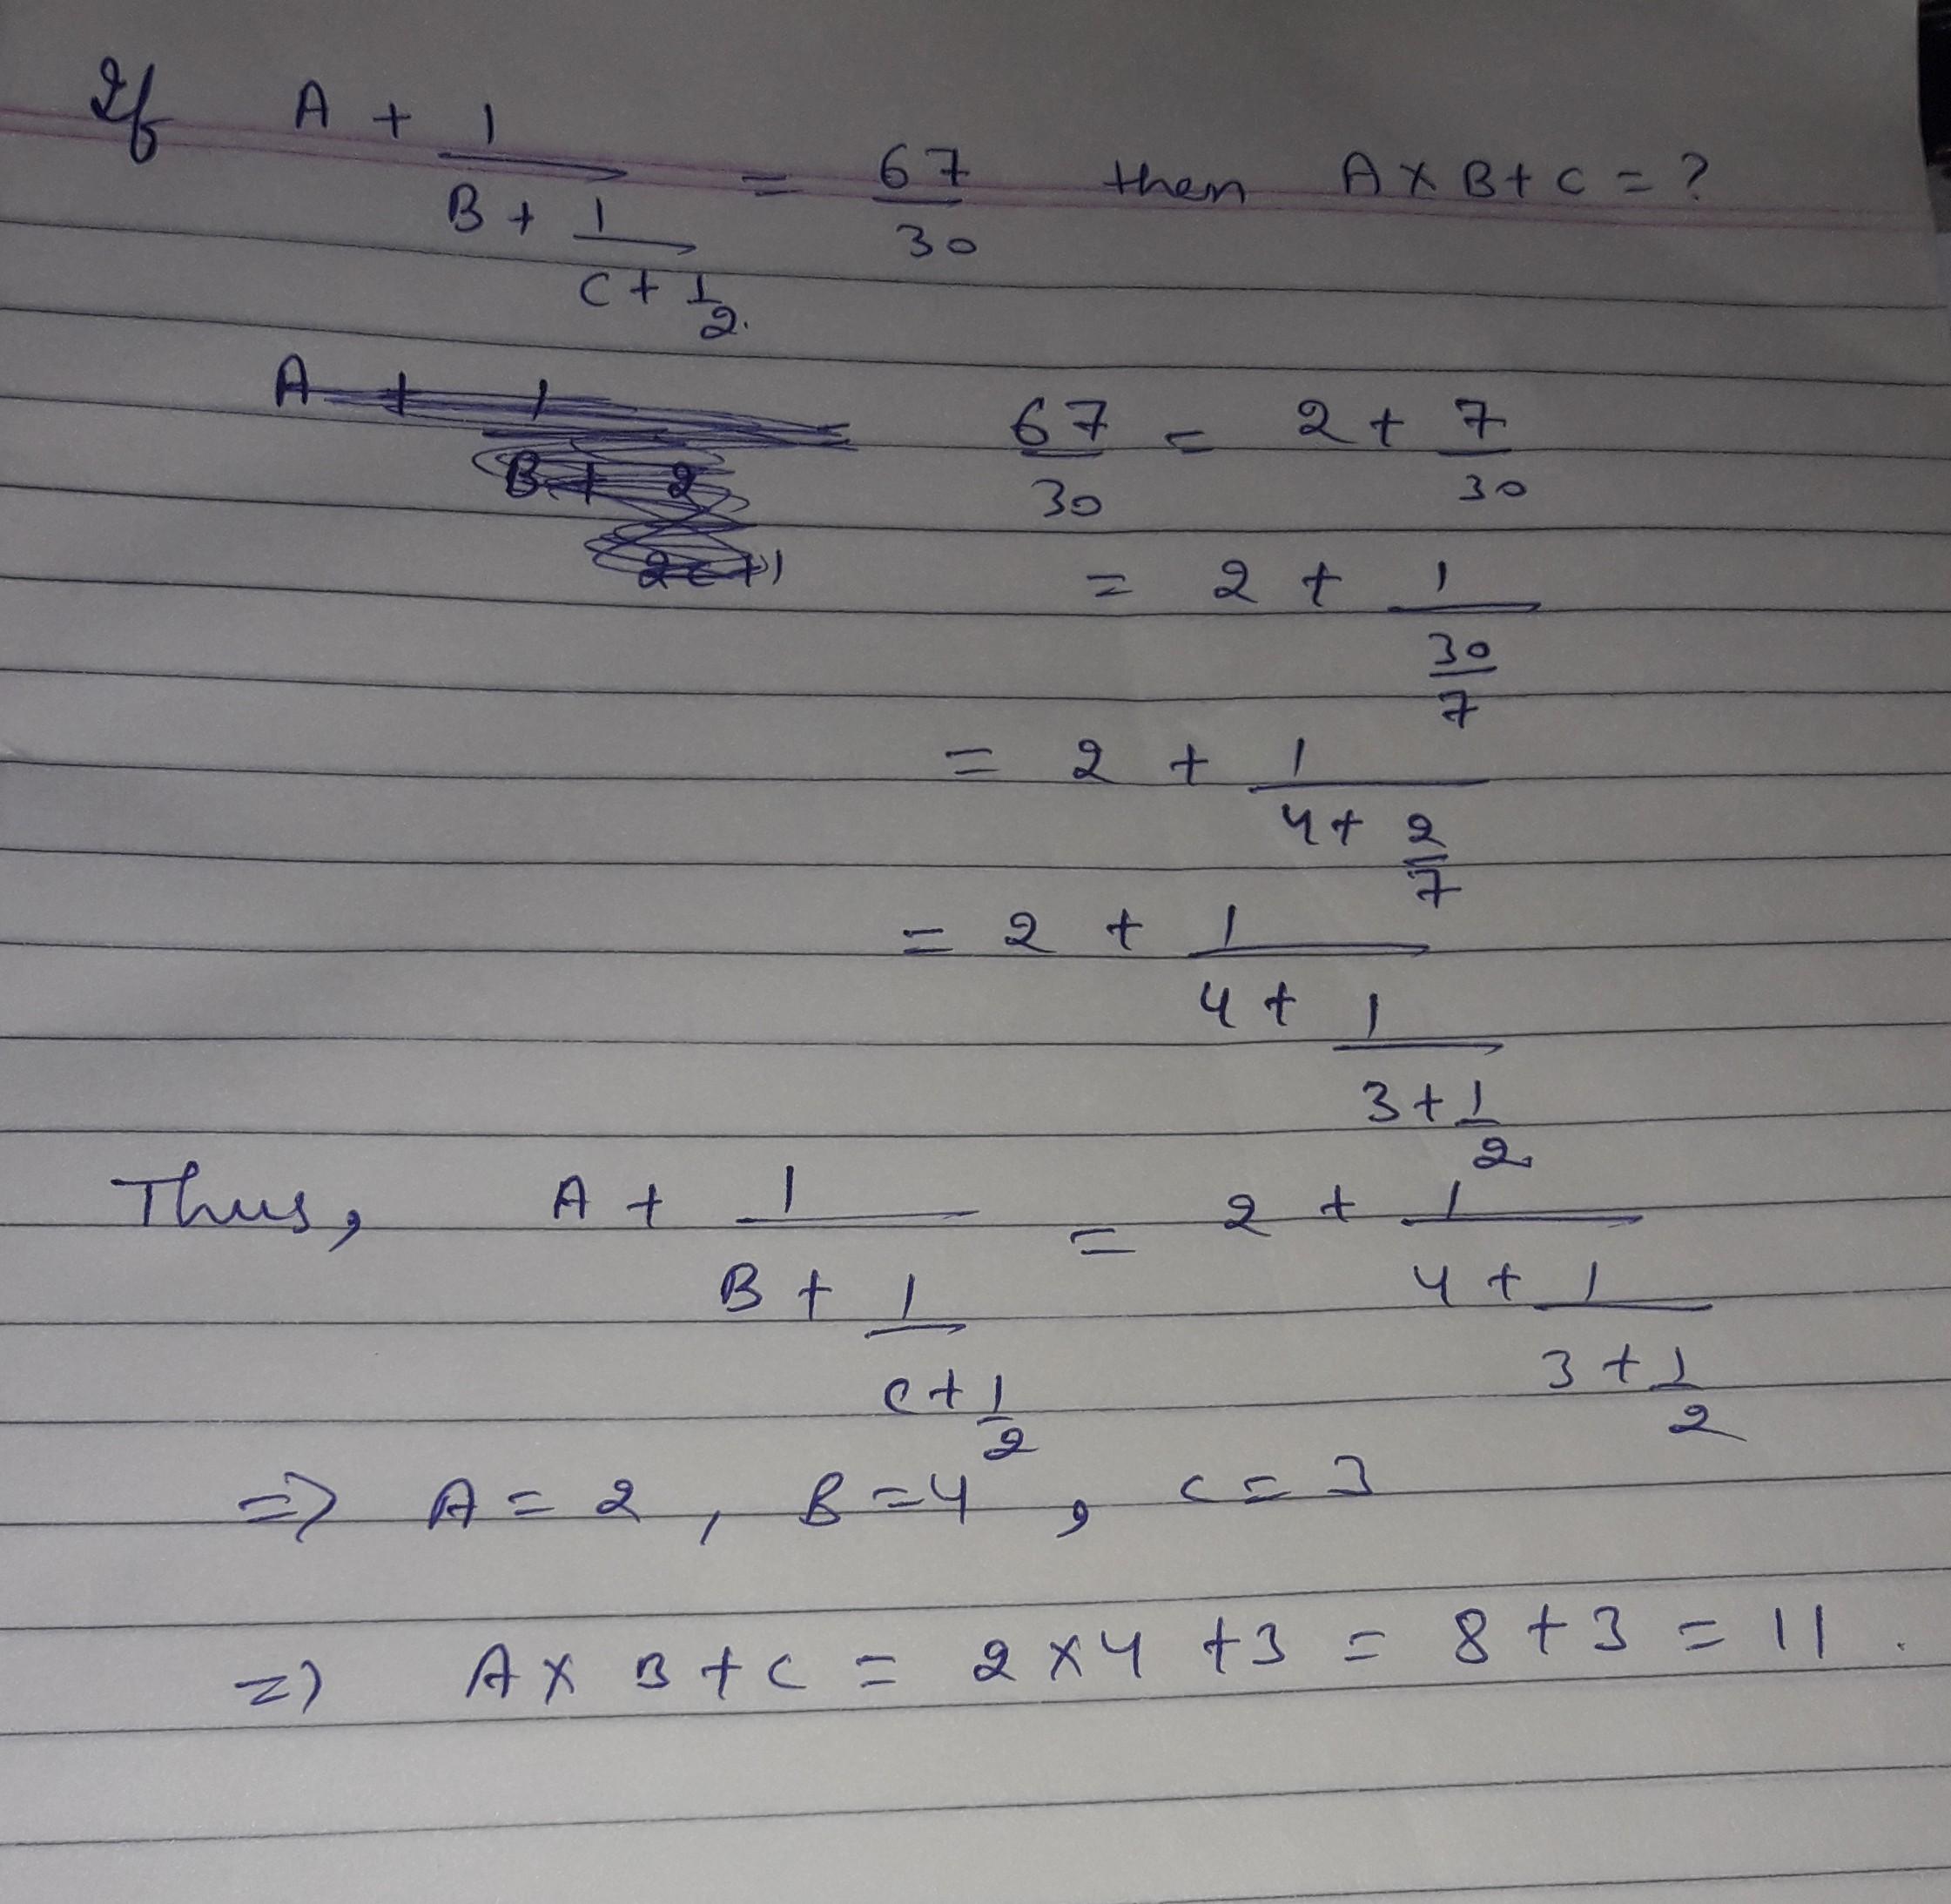 If A + 1/(B + 1/(C + 1/2)) = 67/30 then A × B + C = ?
A + 1/(B + 2/(2C + 1))
67/30 = 2 + 7/30
= 2 + 1/(30/7)
= 2 + 1/(4 + 2/7)
= 2 + 1/(4 + 1/(3 + 1/2))
Thus, A + 1/(B + 1/(C + 1/2)) = 2 + 1/(4 + 1/(3 + 1/2))
=> A = 2, B = 4, C = 3
=> A × B + C = 2 × 4 + 3 = 8 + 3 = 11.